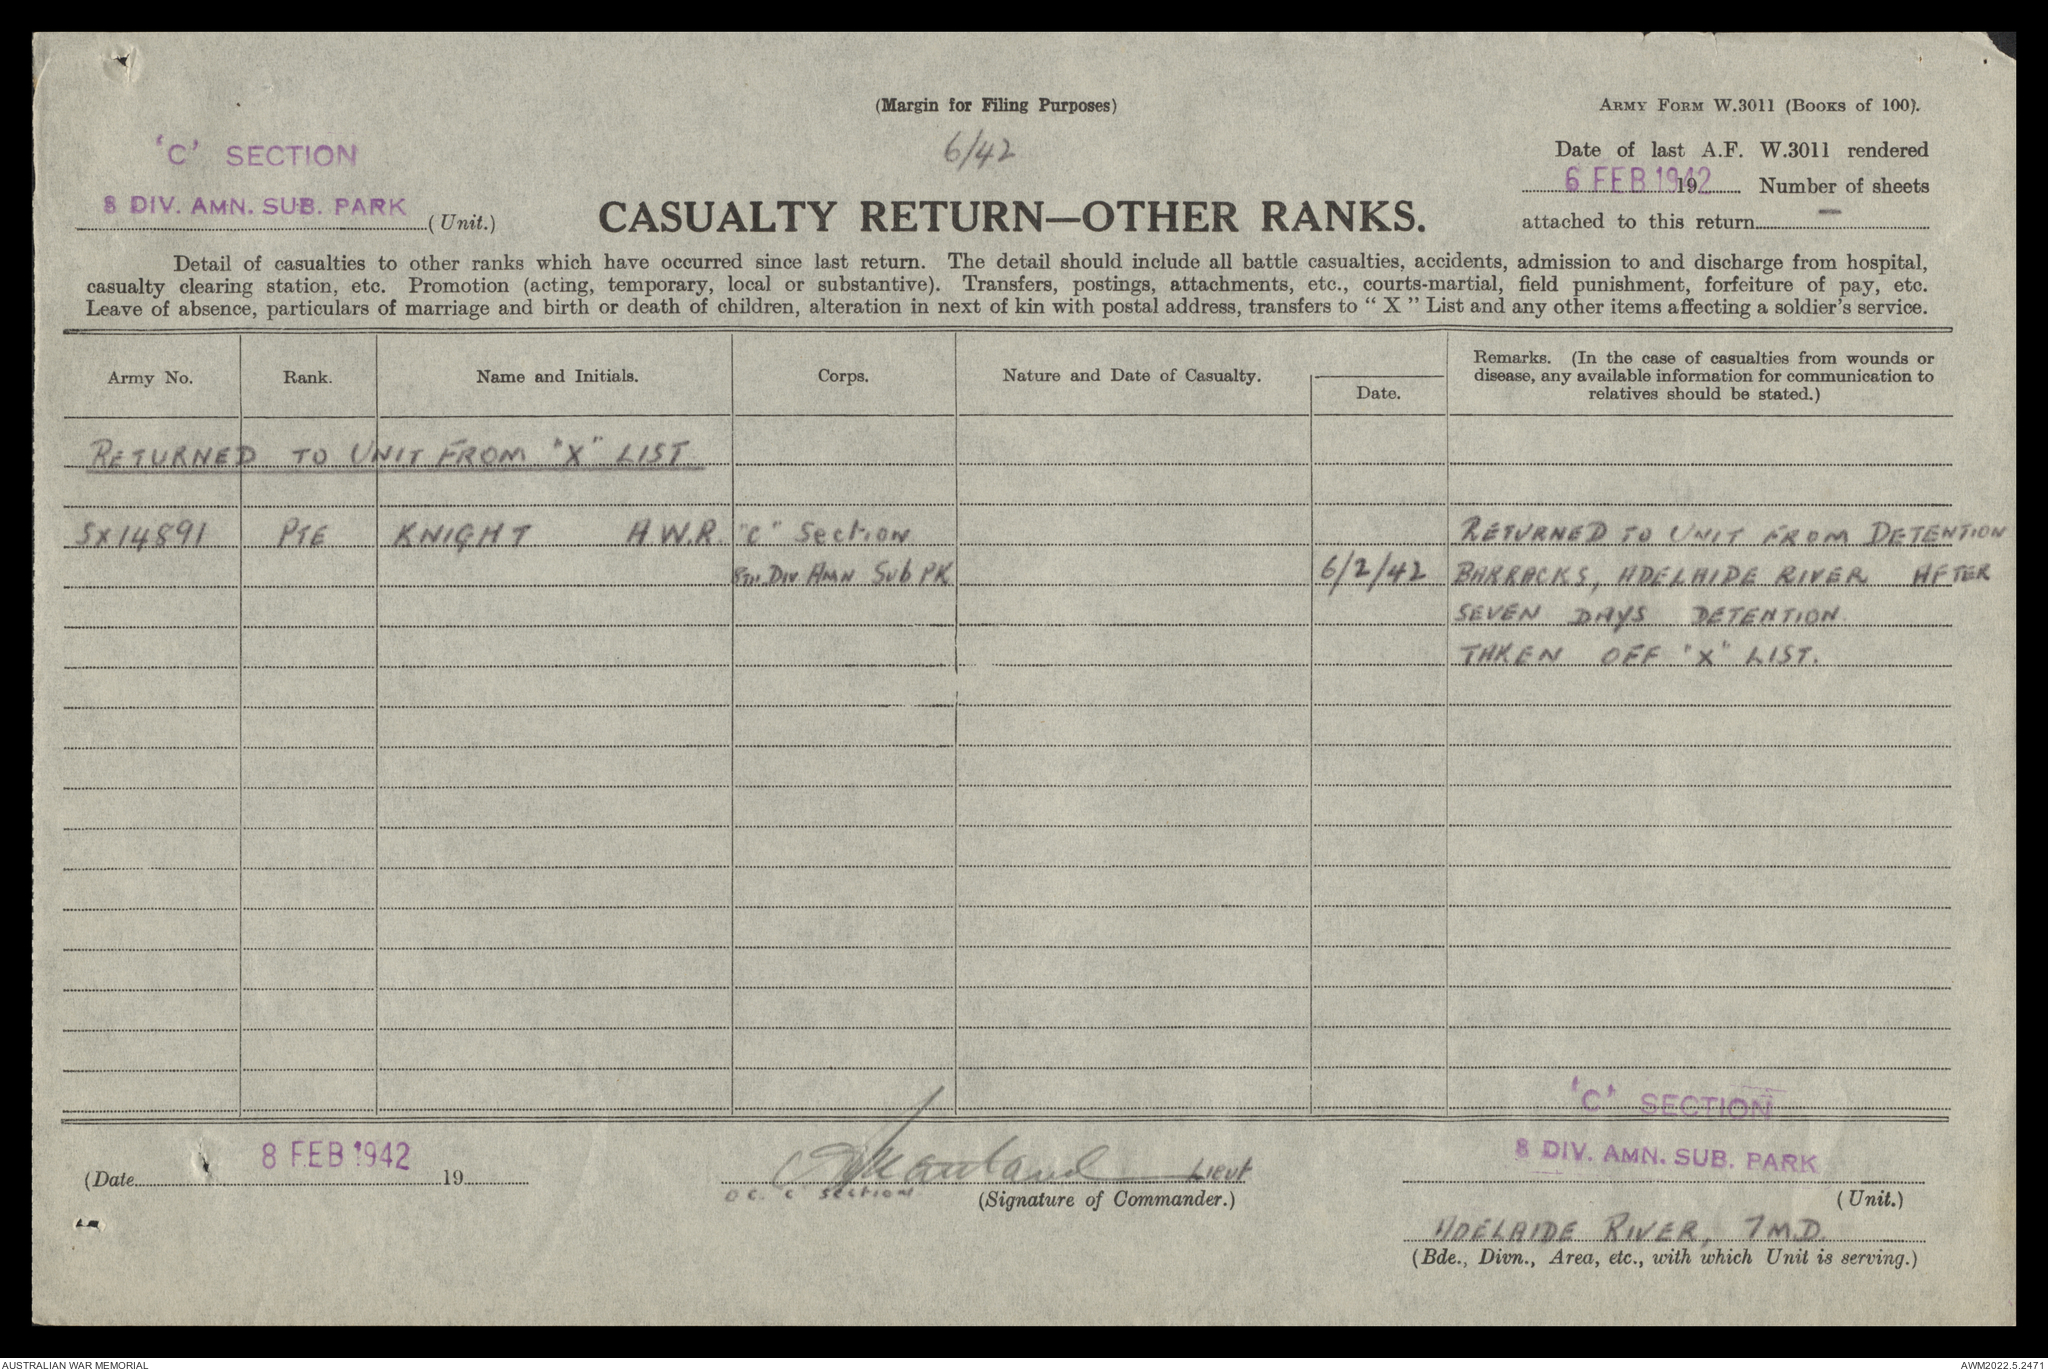 (Margin for Filing Purposes)
ARMY FORM W.3011 (BOOKS of 100).
6/42
'C' SECTION
8 DIV. AMN. SUB. PARK (Unit.)
CASUALTY RETURN—OTHER RANKS.
Date of last A.F. W.3011 rendered
6 FEB 1942 19 Number of sheets
attached to this return –
Detail of casualties to other ranks which have occurred since last return. The detail should include all battle casualties, accidents, admission to and discharge from hospital,
casualty clearing station, etc. Promotion (acting, temporary, local or substantive). Transfers, postings, attachments, etc., courts-martial, field punishment, forfeiture of pay, etc.
Leave of absence, particulars of marriage and birth or death of children, alteration in next of kin with postal address, transfers to “ X ” List and any other items affecting a soldier's service.
Army No. Rank. Name and Initials. Corps. Nature and Date of Casualty. Date.
Remarks. (In the case of casualties from wounds or
disease, any available information for communication to
relatives should be stated.)
RETURNED TO UNIT FROM "X" LIST
SX14891 PTE KNIGHT A W.R. "C" Section RETURNED TO UNIT FROM DETENTION
8TH DIV AMN SUB PK 6/2/42 BARRACKS, ADELAIDE RIVER AFTER
SEVEN DAYS DETENTION
TAKEN OFF "X" LIST.
'C' SECTION
8 DIV. AMN. SUB. PARK
(Date 8 FEB 1942 19
Lieut
OC. "C" SECTION (Signature of Commander.)
(Unit.)
ADELAIDE RIVER, 7 M.D.
(Bde., Divn., Area, etc., with which Unit is serving.)
AUSTRALIAN WAR MEMORIAL
AWM2022.5.2471